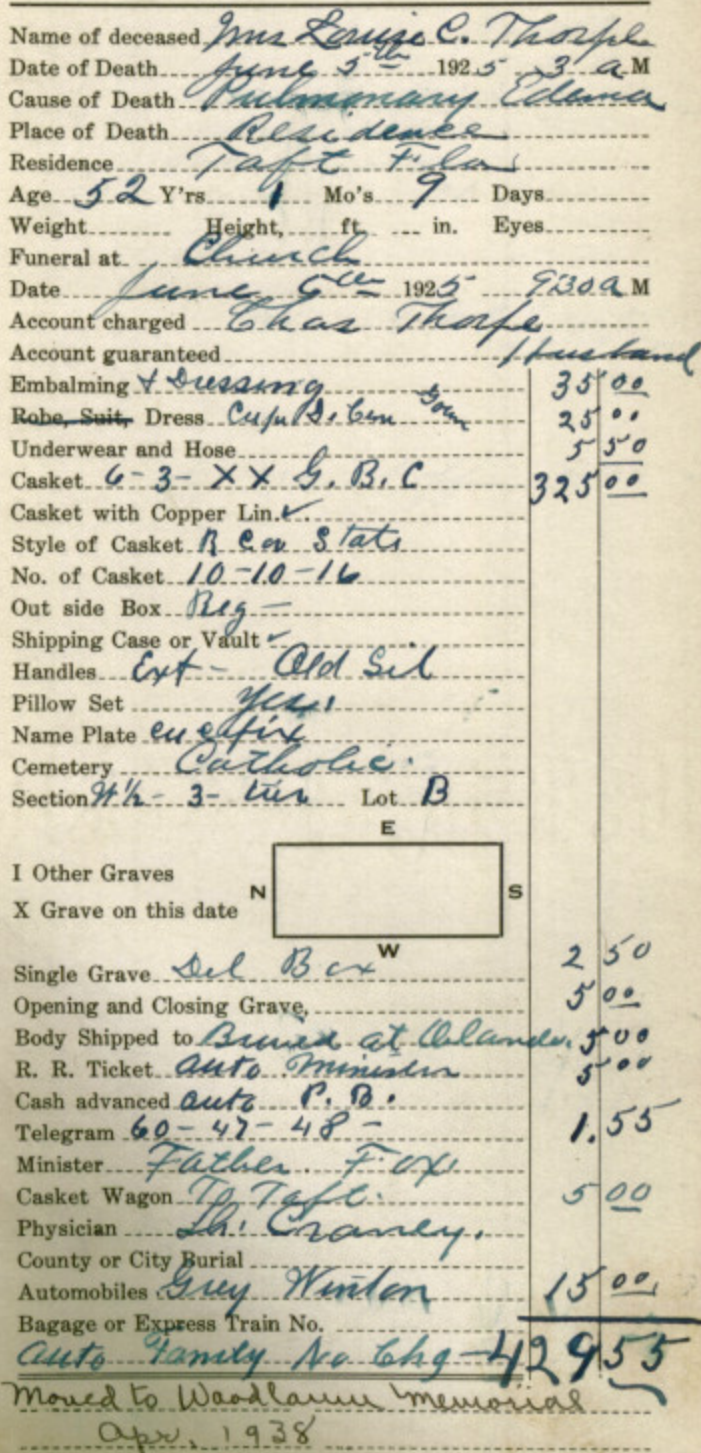 Name of deceased Mrs Louise C. Thorpe
Date of Death June 5th 1925 3 a M
Cause of Death Pulmonary Edema
Place of Death Residence
Residence Taft Fla
Age 52 Y'rs 1 Mo's 9 Days
Weight Height, ft. in. Eyes
Funeral at Church
Date June 6th 1925 930 a M
Account charged Chas Thorpe
Account guaranteed Husband
Embalming & Dressing 35 00
Robe, Suit, Dress Gown 25 00
Underwear and Hose 5 50
Casket 6-3-XX G. B. C 325 00
Casket with Copper Lin. ✓
Style of Casket
No. of Casket 10-10-16
Out side Box Reg -
Shipping Case or Vault ✓
Handles Ext - Old Sil
Pillow Set Yes
Name Plate
Cemetery Catholic
Section 3- tier Lot B
E
I Other Graves
N S
X Grave on this date
W
Single Grave Del Box 2 50
Opening and Closing Grave, 5 00
Body Shipped to Buried at Orlando. 5 00
R. R. Ticket auto Minister 5 00
Cash advanced auto P. B.
Telegram 60-47-48- 1.55
Minister Father Fox
Casket Wagon To Taft. 5 00
Physician Craney.
County or City Burial
Automobiles Grey Winton 15 00
Bagage or Express Train No.
Auto Family No Chg - 429 55
Moved to Woodlawn Memorial
Apr. 1938